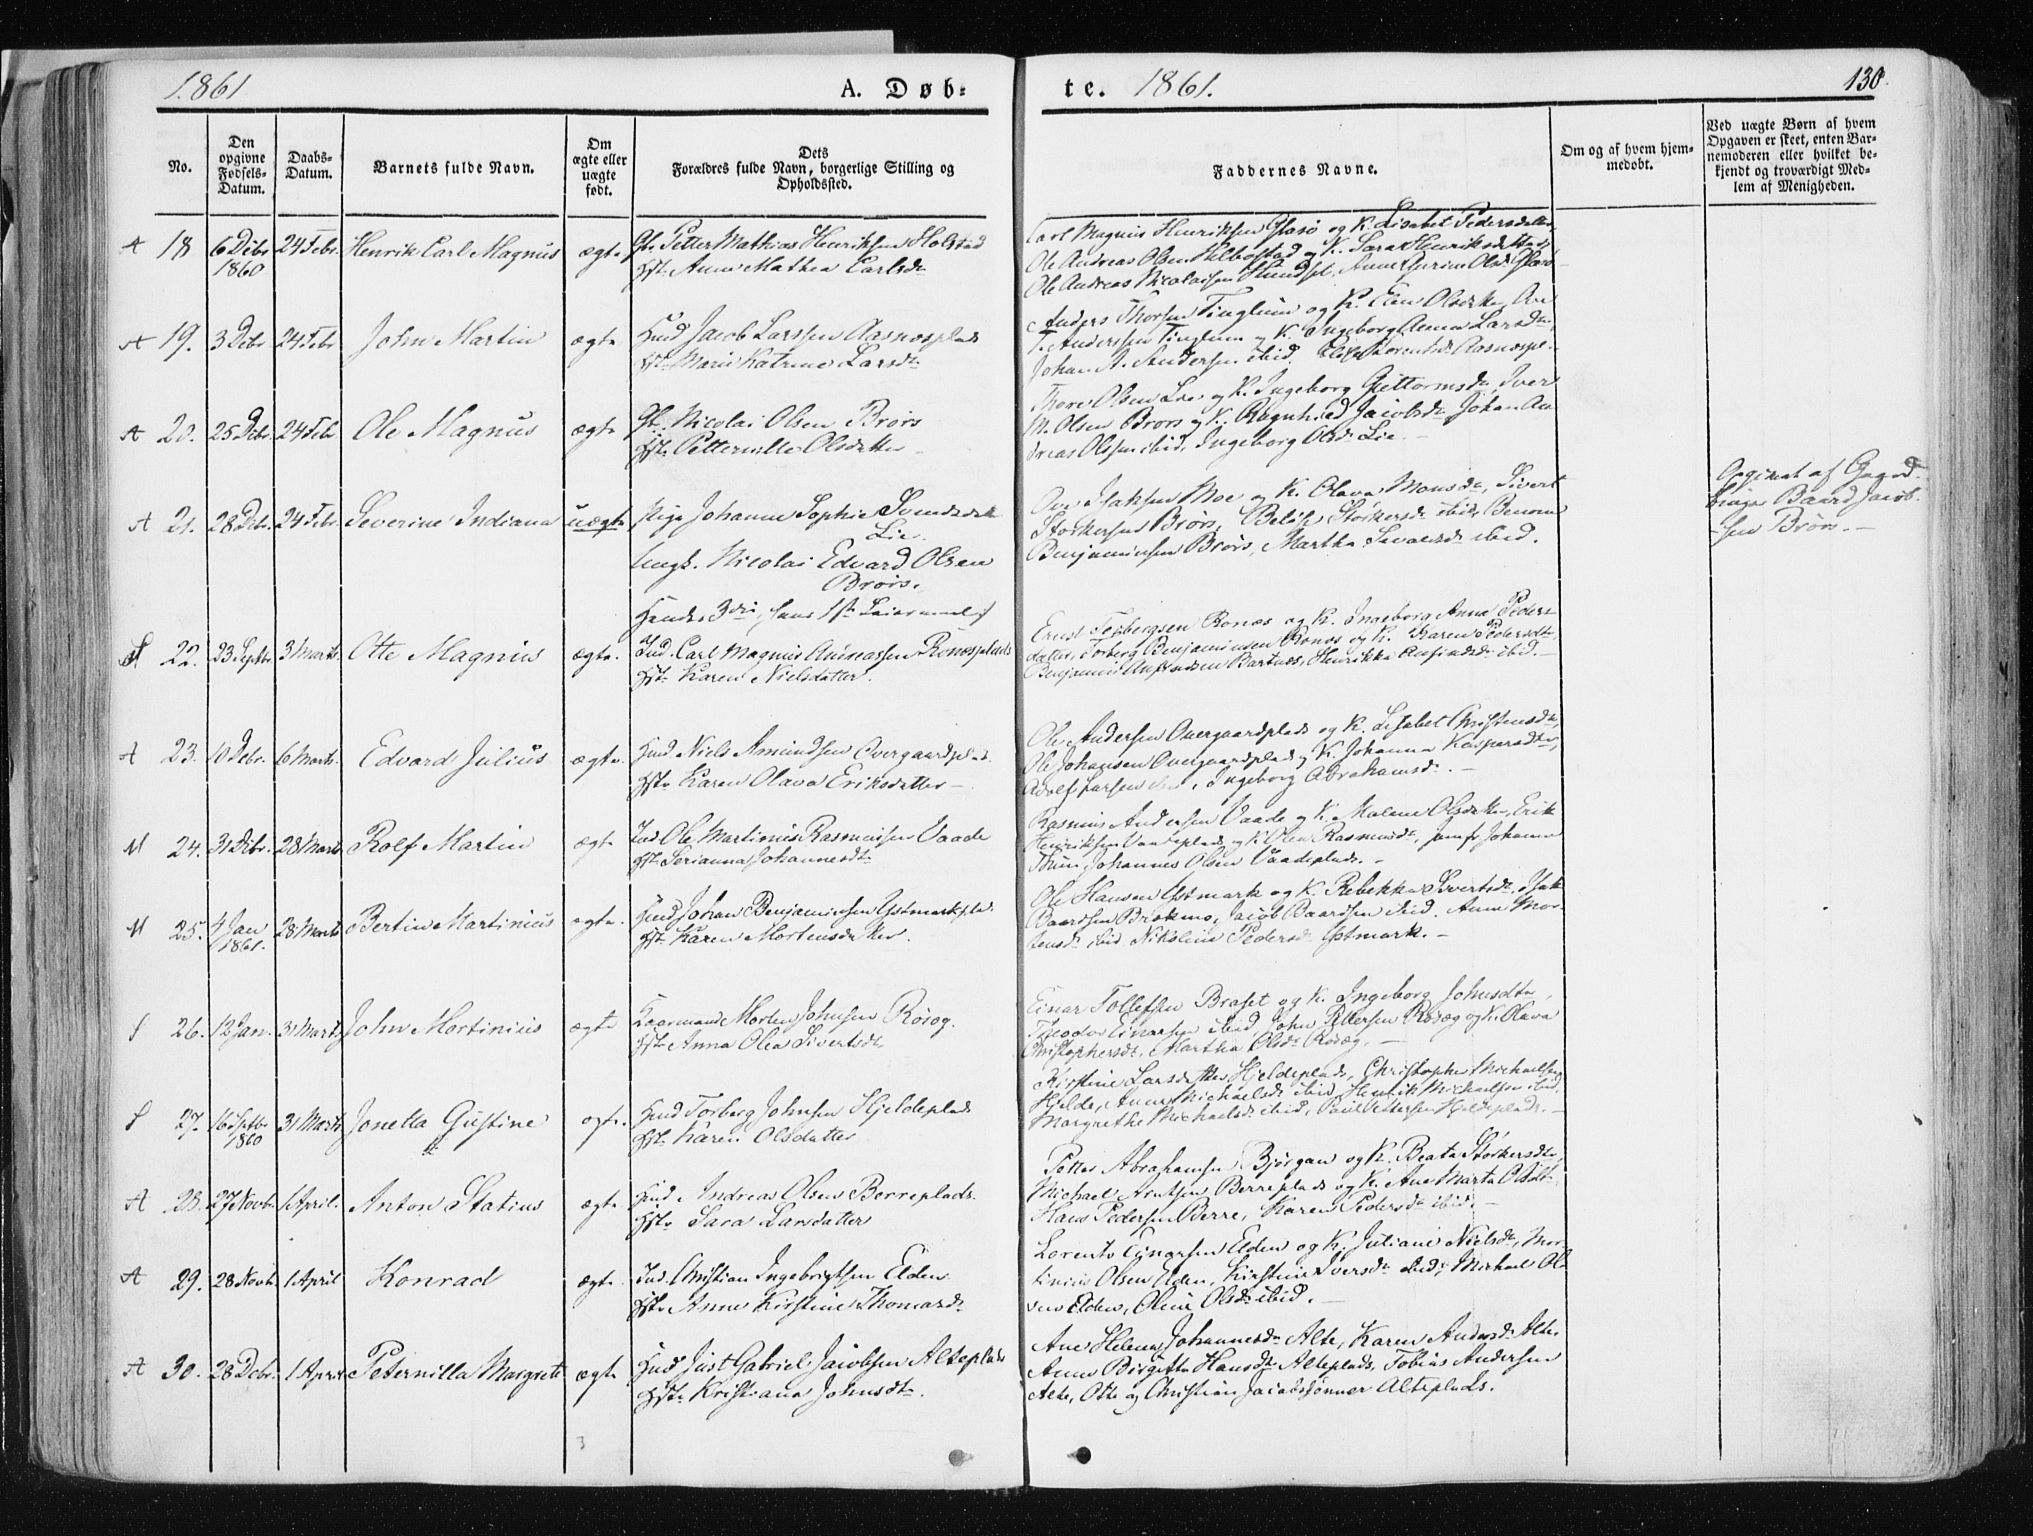 1861
A. Døb-
te. 1861.
130
No.
Den opgivne Fødsels-Datum.
Daabs-Datum.
Barnets fulde Navn.
Om ægte eller uægte født.
Dets Forældres fulde Navn, borgerlige Stilling og Opholdssted.
Faddernes Navne.
Om og af hvem hjem-medøbt.
Ved uægte Børn af hvem Opgaven er skeet, enten Bar-nemoderen eller hvilket be-kjendt og troværdigt Med-lem af Menigheden.
A 18 6 Debr 1860 24 Febr. Henrik Carl Magnus ægte
Petter Mathias Henriksen Holstad
Hst. Anne Mathea Carlsdr
Carl Magnus Henriksen Glasø og K. Lisabet Pedersdatter
Ole Andreas Olsen Helbostad og K. Sara Henriksdatter
Ole Andreas Nicolaisen
A 19. 3 Debr 24 Febr John Martin ægte
Hmd Jacob Larssen Aasnæsplads
Hst. Marie Katrine Larsdr
Anders Thorsen Tinglum og K. Elen Olsdatter, Ole
T. Anderssen Tinglum og K. Ingeborg Anna Larsdr
Johan A. Andersen ibid.
A 20. 25 Debr. 24 Feb Ole Magnus ægte
Nicolai Olsen Brørs
Hst. Petternille Olsdatter
Thore Olsen Lie og K. Ingeborg Guttormsdr, Iver
M. Olsen Brørs og K. Ragnhild Jacobsdr Johan An
dreas Olssen ibid, Ingeborg Olsdr Lie.
A 21. 28 Debr. 24 Febr. Severine Indiana uægte
Pige Johanna Sophie Svendsdr
Lie.
Ungk. Nicolai Edvard Olsen
Brørs.
Hendes 3die, hans 1ste Leiermaal
Ove Isaksen Moe og K. Olava Monsdr, Sivert
Storkersen Brørs, Storkersdr ibid, Benoni
Benjaminsen Brørs, Martha Sivertsdr ibid.
Opgivet af Gaard-
bruger Baard Jacob-
sen Brørs.
S 22. 23 Septbr 3 Marts. Otte Magnus ægte.
Ind. Carl Magnus Andreassen Ronæsplads
Hst. Karen Nielsdatter.
Ernst Torbergsen Ronæs og K. Ingeborg Anna Peders-
datter, Torberg Benjaminsen Ronæs og K. Karen Pedersdtr
Benjamin Anfindsen Bartnes, Henrikka Anfindsdr ibid.
A 23. 10 Debr. 6 Marts. Edvard Julius ægte.
Hmd Niels Amundsen Overgaardplads.
Hst. Karen Olava Eriksdatter
Ole Andersen Overgaardplads og K. Lisabet Christensdr,
Ole Johansen Overgaardplads og K. Johanna Kaspersdtr,
Adolf Larsen, Ingeborg Abrahamsdr.
M 24. 31 Debr. 28 Marts Rolf Martin ægte
Ind Ole Martinus Rasmussen Vaade
Hst. Serianna Johannesdtr
Rasmus Andersen Vaade og K. Malene Olsdatter, Erik
Henriksen Vaadeplads og K. Olea Rasmusdr, Jomfr. Johanna
Thun, Johannes Olsen Vaadeplads.
M 25. 4 Jan 1861. 28 Marts Bertin Martinius ægte.
Hmd Johan Benjaminsen Ystmarkpl.
Hst. Karen Mortensdatter.
Ole Hansen Ystmark og K. Rebekka Sivertsdr, Isak
Baardsen Brækmo, Jacob Baardsen ibid. Anne Mor-
tensdr ibid, Nikoline Pedersdr Ystmark.
S 26. 12 Jan. 31 Marts John Mortinius ægte
Kaarmand Morten Johnsen Røseg.
Hst. Anna Olea Sivertsdr
Einar Tollefsen Braset og K. Ingeborg Johnsdtr,
Theodor Einarsen ibid John Pettersen Røseg og K. Olava
Christophersdr, Martha Olsdr Røseg.
S 27. 16 Septbr 1860 31 Marts Jonetta Gustine ægte.
Hmd Torberg Johnsen Hjeldeplads
Hst. Karen Olsdatter
Kirstine Larsdatter Hjeldeplads, Christopher Michaelsen
Hjelde, Anne Michaelsdr ibid, Henrik Michaelsen ibid,
Margrethe Michaelsdr ibid, Paul Pettersen Hjeldeplads.
A 28. 27 Novbr 1 April. Anton Statius ægte
Hmd Andreas Olsen Berreplads.
Hst. Sara Larsdatter
Petter Abrahamsen Bjørgan og K. Beata Størkersdtr,
Michael Arntsen Berreplads og K. Ane Marta Olsdtr
Hans Pedersen Berre, Karen Pedersdr ibid.
A 29. 28 Novbr 1 April Konrad ægte.
Ind. Christian Ingebrigtsen Elden
Hst. Anne Kirstine Thomasdr
Lorents Ejnarsen Elden og K. Juliane Nielsdtr, Mor-
tinius Olsen Elden, Kirstine Iversdr ibid, Michael Ol
sen Elden, Oline Olsdr ibid.
A 30. 28 Debr. 1 April Peternilla Margrete ægte
Hmd Just Gabriel Jacobsen Alteplads
Hst. Kristiana Johnsdtr.
Ane Helena Johannesdr Alte, Karen Andersdr Alte,
Anne Birgitta Hansdtr Alteplads, Tobias Andersen
Alte, Otte og Christian Jacobssønner Alteplads.